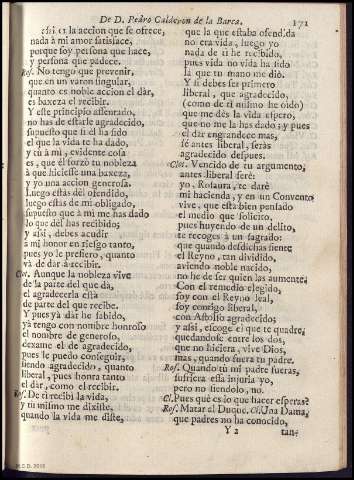 De D. Pedro Calderon de la Barca. 171
assi es la accion que se ofrece,
nada à mi amor satisface,
porque soy persona que hace,
y persona que padece.
Ros. No tengo que prevenir,
que en un varon singular,
quanto es noble accion el dàr,
es baxeza el recibir.
Y este principio assentado,
no has de estarle agradecido,
supuesto que si èl ha sido
el que la vida te ha dado,
y tù à mi, evidente cosa
es, que èl forzò tu nobleza
à que hiciesse una baxeza,
y yo una accion generosa.
Luego estàs del ofendido,
luego estàs de mi obligado,
supuesto que à mi me has dado
lo que del has recibido;
y assi, debes acudir
à mi honor en riesgo tanto,
pues yo le prefiero, quanto
và de dàr à recibir.
Clot. Aunque la nobleza vive
de la parte del que dà,
el agradecerla està
de parte del que recibe.
Y pues yà dàr he sabido,
yà tengo con nombre honroso
el nombre de generoso,
dexame el de agradecido,
pues le puedo conseguir,
siendo agradecido, quanto
liberal, pues honra tanto
el dàr, como el recibir.
Ros. De tì recibì la vida,
y tu mismo me dixiste,
quando la vida me diste,
que la que estaba ofendida
no era vida, luego yo
nada de ti he recibido,
pues vida no vida ha sido
la que tu mano me diò.
Y si debes ser primero
liberal, que agradecido,
(como de ti mismo he oido)
que me dès la vida espero,
que no me la has dado; y pues
el dàr engrandece mas,
sè antes liberal, seràs
agradecido despues.
Clot. Vencido de tu argumento,
antes liberal serè:
yo, Rosaura, te darè
mi hacienda, y en un Convento
vive, que està bien pensado
el medio que solicito,
pues huyendo de un delito,
te recoges à un sagrado:
que quando desdichas siente
el Reyno, tan dividido,
aviendo noble nacido,
no he de ser quien las aumente.
Con el remedio elegido,
soy con el Reyno leal,
soy contigo liberal,
con Astolfo agradecido;
y assi, escoge el que te quadre,
quedandose entre los dos,
que no hiciera, vive Dios,
mas, quando fuera tu padre.
Ros. Quando tù mi padre fueras,
sufriera essa injuria yo,
pero no siendolo, no.
Cl. Pues què es lo que hacer esperas?
Ros. Matar al Duque. Cl. Una Dama,
que padres no ha conocido,
Y 2 tan-